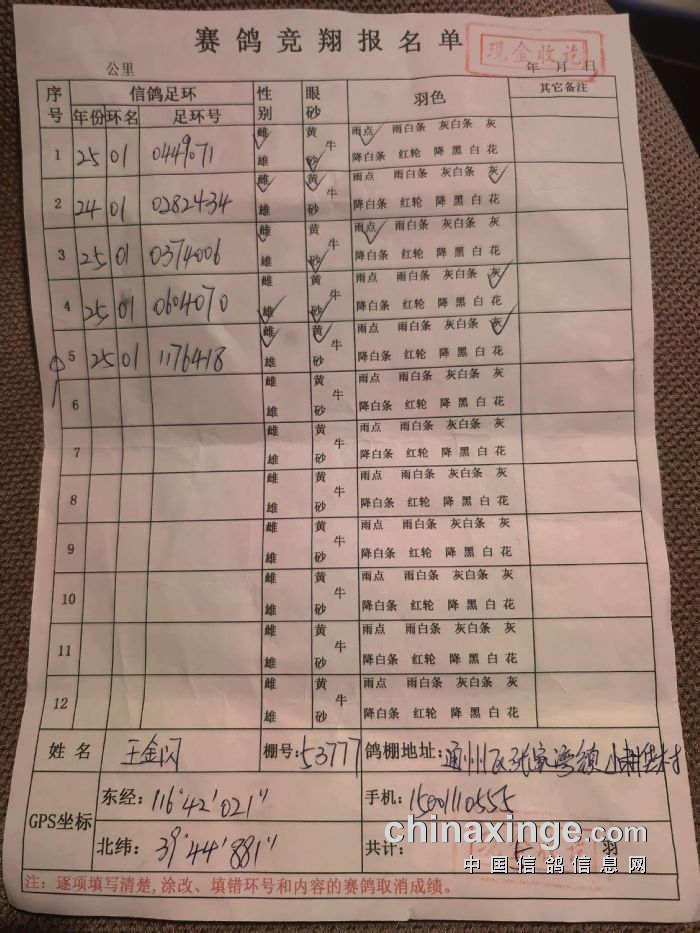 赛鸽竞翔报名单
现金收讫
公里 年 月 日
序号 信鸽足环 性别 眼砂 羽色 其它备注
年份 环名 足环号
雌 黄 雨点 雨白条 灰白条 灰
1 25 01 0449071 牛
雄 砂 降白条 红轮 降 黑 白 花
雌 黄 雨点 雨白条 灰白条 灰
2 24 01 0282434 牛
雄 砂 降白条 红轮 降 黑 白 花
雌 黄 雨点 雨白条 灰白条 灰
3 25 01 0374006 牛
雄 砂 降白条 红轮 降 黑 白 花
雌 黄 雨点 雨白条 灰白条 灰
4 25 01 0604070 牛
雄 砂 降白条 红轮 降 黑 白 花
雌 黄 雨点 雨白条 灰白条 灰
5 25 01 1176418 牛
雄 砂 降白条 红轮 降 黑 白 花
雌 黄 雨点 雨白条 灰白条 灰
6 牛
雄 砂 降白条 红轮 降 黑 白 花
雌 黄 雨点 雨白条 灰白条 灰
7 牛
雄 砂 降白条 红轮 降 黑 白 花
雌 黄 雨点 雨白条 灰白条 灰
8 牛
雄 砂 降白条 红轮 降 黑 白 花
雌 黄 雨点 雨白条 灰白条 灰
9 牛
雄 砂 降白条 红轮 降 黑 白 花
雌 黄 雨点 雨白条 灰白条 灰
10 牛
雄 砂 降白条 红轮 降 黑 白 花
雌 黄 雨点 雨白条 灰白条 灰
11 牛
雄 砂 降白条 红轮 降 黑 白 花
雌 黄 雨点 雨白条 灰白条 灰
12 牛
雄 砂 降白条 红轮 降 黑 白 花
姓名 王金闪 棚号:53777 鸽棚地址:通州区张家湾镇
GPS坐标 东经:116°42′021″ 手机:15001110555
北纬:39°44′881″ 共计: 5 羽
现金收讫
chinaxinge.com
中国信鸽信息网
注:逐项填写清楚,涂改、填错环号和内容的赛鸽取消成绩。